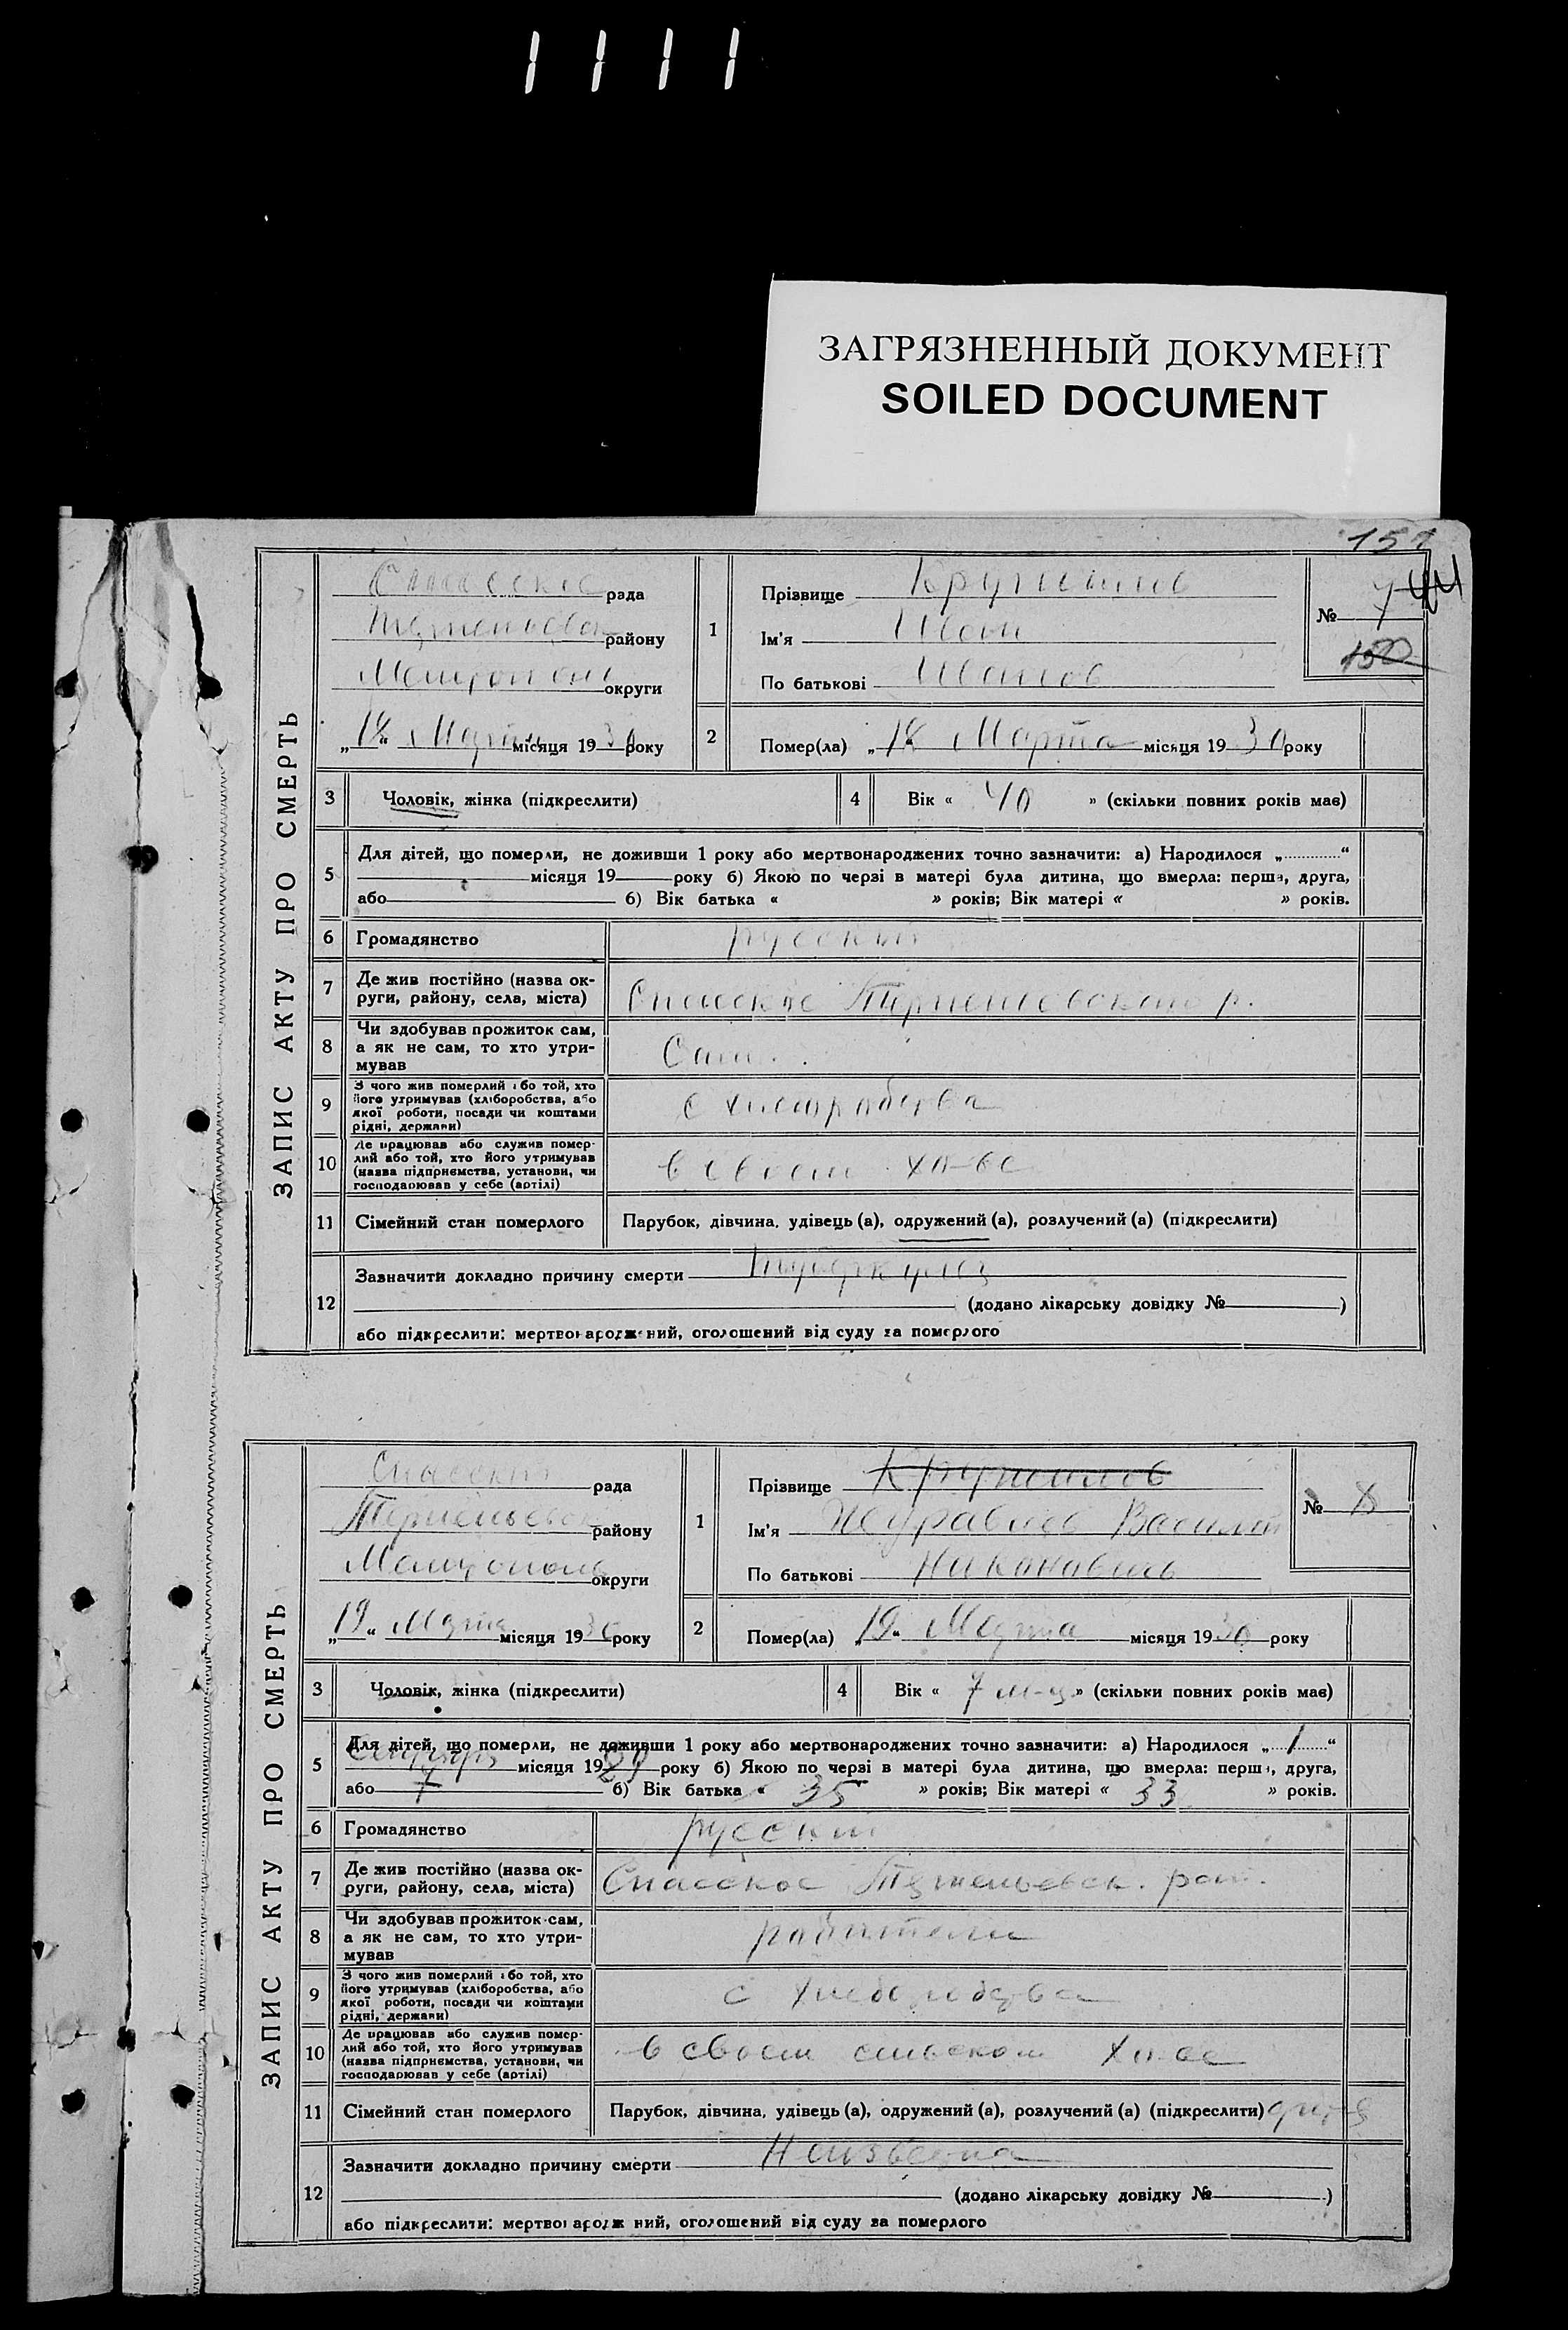 1111
ЗАГРЯЗНЕННЫЙ ДОКУМЕНТ
SOILED DOCUMENT
ЗАПИС АКТУ ПРО СМЕРТЬ
Спасское рада
району
Мелитополь округи
„18“ Марта місяця 1930 року
1 Прізвище
Ім'я Иван
По батькові Иванов
№ 7 44
150
2 Помер(ла) „18 Марта місяця 1930 року
3 Чоловік, жінка (підкреслити)
4 Вік « 40 » (скільки повних років має)
5 Для дітей, що померли, не доживши 1 року або мертвонароджених точно зазначити: а) Народилося „ “
місяця 19 року б) Якою по черзі в матері була дитина, що вмерла: перша, друга,
або б) Вік батька « » років; Вік матері « » років.
6 Громадянство русский
7 Де жив постійно (назва ок-
руги, району, села, міста)
Спасское р.
8 Чи здобував прожиток сам,
а як не сам, то хто утри-
мував
Сам.
9 З чого жив померлий або той, хто
його утримував (хліборобства, або
якої роботи, посади чи коштами
рідні, держави)
с хлеборобства
10 Де працював або служив помер-
лий або той, хто його утримував
(назва підприємства, установи, чи
господарював у себе (артілі)
в своем хо-ве
11 Сімейний стан померлого Парубок, дівчина, удівець (а), одружений (а), розлучений (а) (підкреслити)
12 Зазначити докладно причину смерти туберкулез
(додано лікарську довідку № )
або підкреслити: мертвонароджений, оголошений від суду за померлого
ЗАПИС АКТУ ПРО СМЕРТЬ
Спасский рада
району
Мелитополь округи
„19“ Марта місяця 1930 року
1 Прізвище
Ім'я Журавлев Василий
По батькові Никонович
№ 8
2 Помер(ла) „19“ Марта місяця 1930 року
3 Чоловік, жінка (підкреслити)
4 Вік « 7 м-ц » (скільки повних років має)
5 Для дітей, що померли, не доживши 1 року або мертвонароджених точно зазначити: а) Народилося „ 1 “
місяця 1929 року б) Якою по черзі в матері була дитина, що вмерла: перша, друга,
або 7 б) Вік батька « 35 » років; Вік матері « 33 » років.
6 Громадянство русский
7 Де жив постійно (назва ок-
руги, району, села, міста)
Спасское
8 Чи здобував прожиток сам,
а як не сам, то хто утри-
мував
родители
9 З чого жив померлий або той, хто
його утримував (хліборобства, або
якої роботи, посади чи коштами
рідні, держави)
с хлеборобства
10 Де працював або служив помер-
лий або той, хто його утримував
(назва підприємства, установи, чи
господарював у себе (артілі)
в своем сельском хо-ве
11 Сімейний стан померлого Парубок, дівчина, удівець (а), одружений (а), розлучений (а) (підкреслити) дитя
12 Зазначити докладно причину смерти Неизвестна
(додано лікарську довідку № )
або підкреслити: мертвонароджений, оголошений від суду за померлого